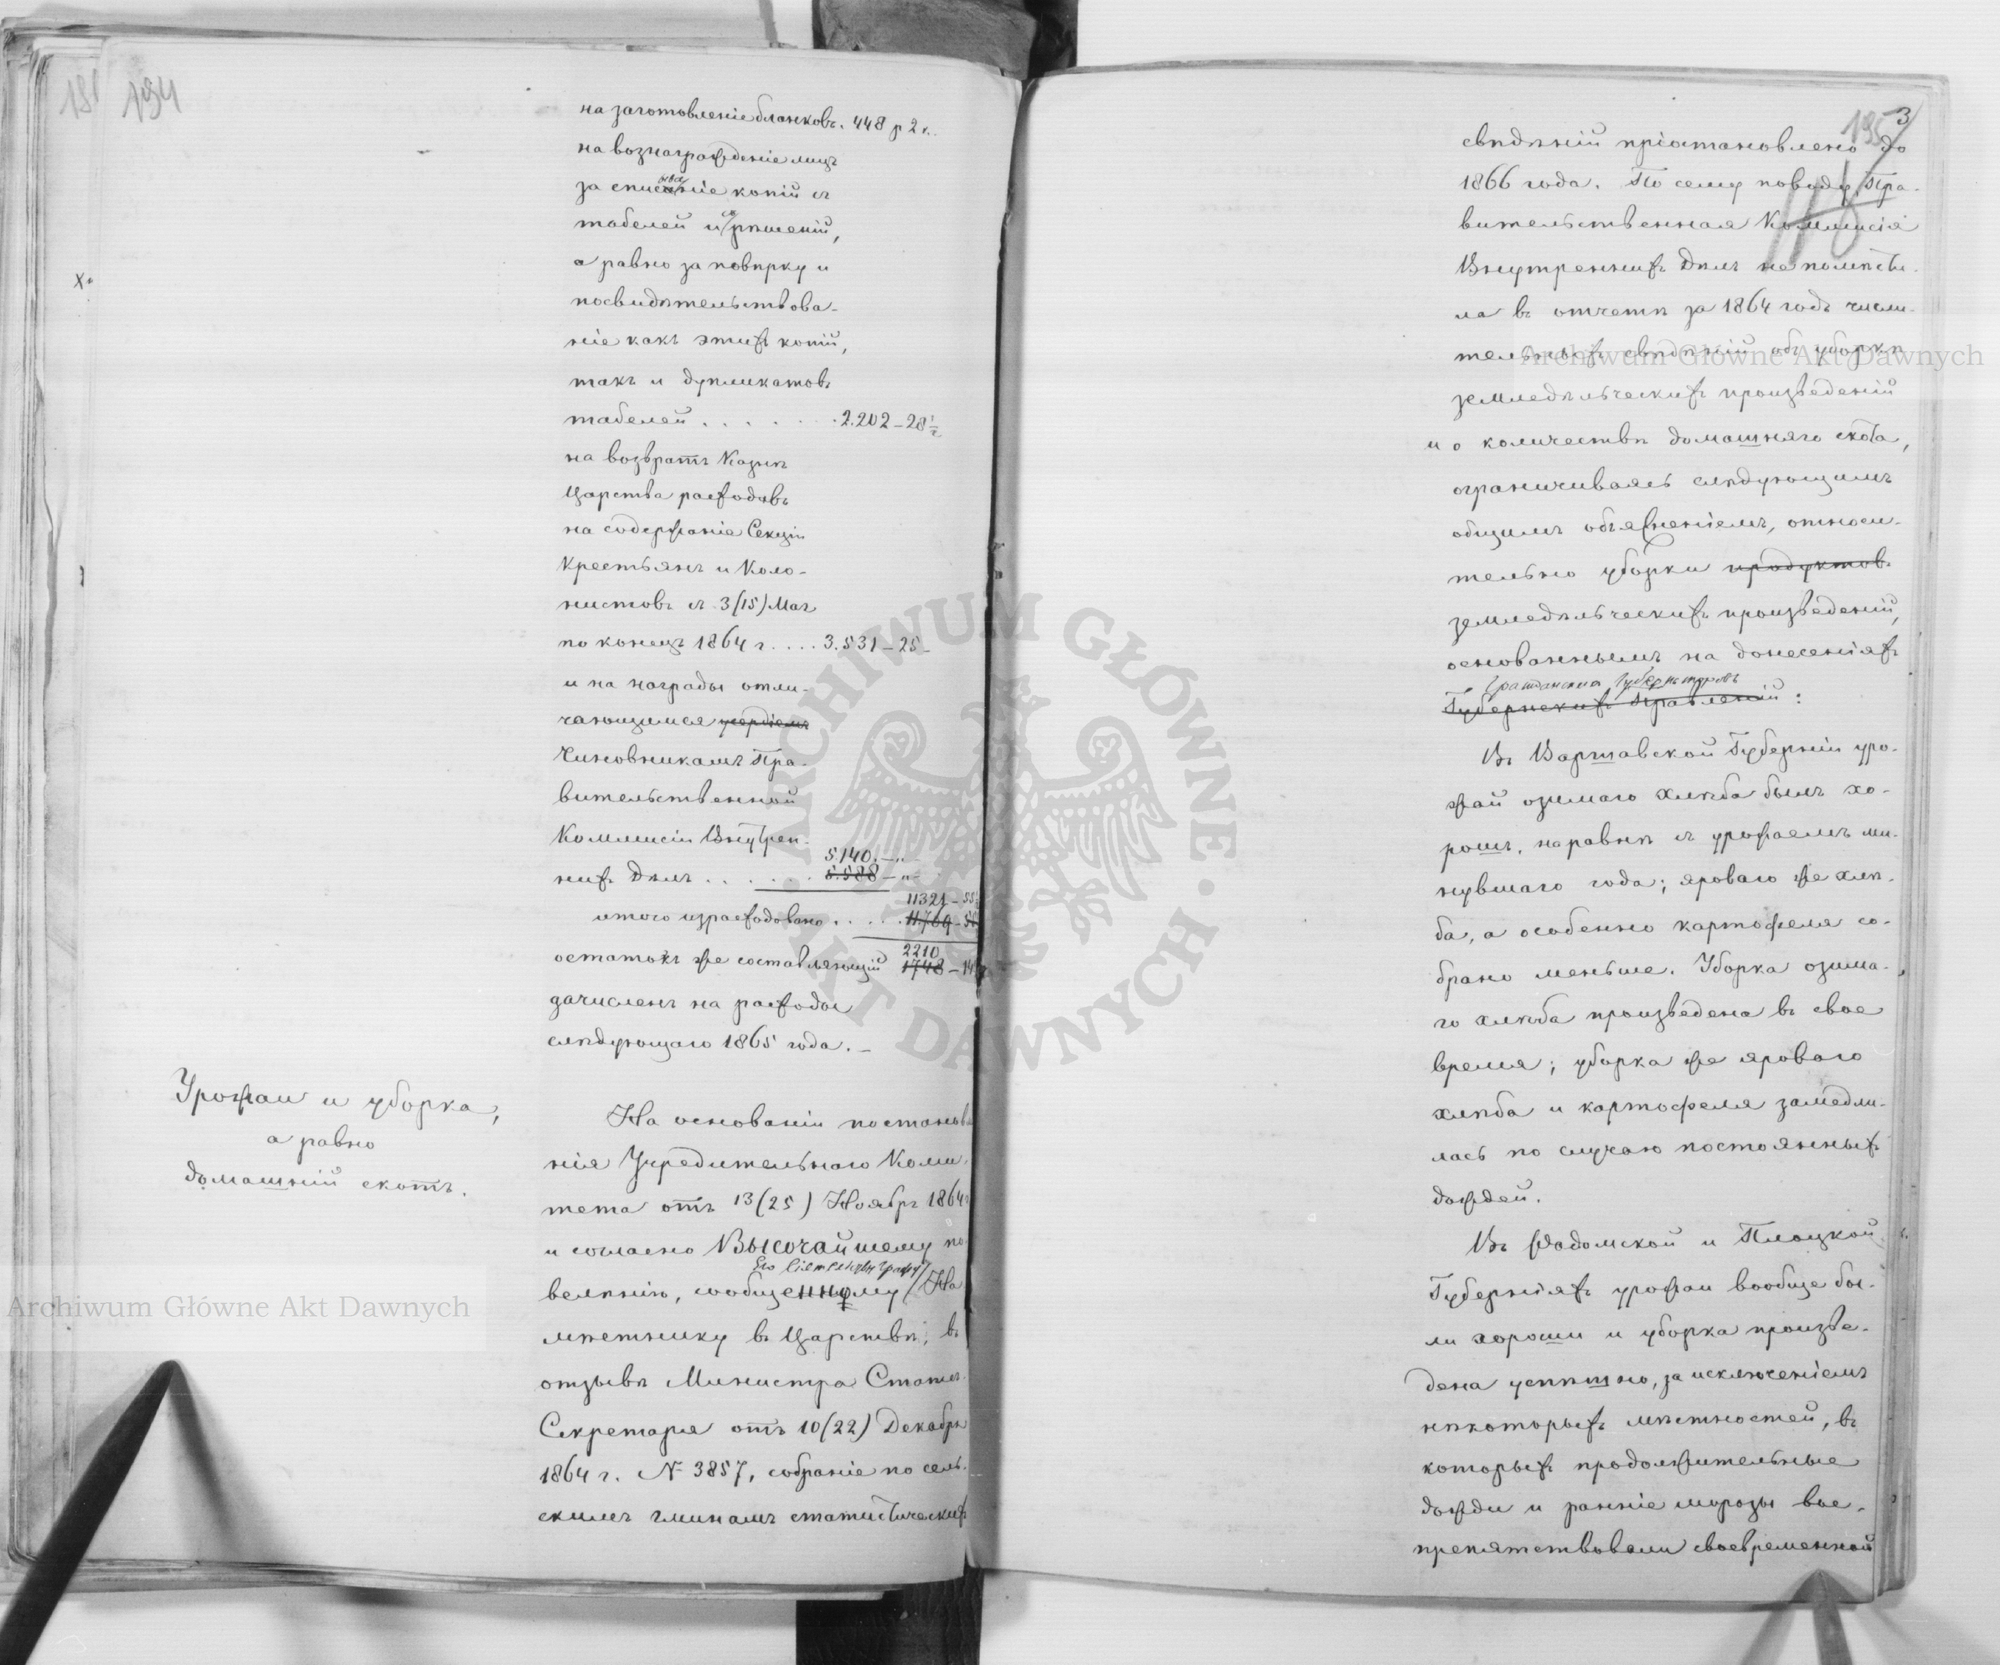 181 194
на заготовленіе бланковъ. 448 р 2 к.
на вознагражденіе лицъ
за списываніе копій съ
табелей и рѣшеній,
а равно за повѣрку и
посвидѣтельствова-
ніе какъ этихъ копій,
такъ и дупликатовъ
табелей . . . . . . . 2.202 – 28 1/2
на возвратъ Казнѣ
Царства расходовъ
на содержаніе Секціи
Крестьянъ и Коло-
нистовъ съ 3 (15) Мая
по конецъ 1864 г . . . . 3.531 – 25 –
и на награды отли-
чающимся усердіемъ
Чиновникамъ Пра-
вительственной
Коммисіи Внутрен-
5.140. – „ –
нихъ Дѣлъ . . . . . . 5.588 – „ –
11321 – 55
итого израсходовано . . . . 11.769 – 55
2210
остатокъ же составляющій 1748 – 14
зачисленъ на расходы
слѣдующаго 1865 года. –
Урожаи и уборка,
а равно
домашній скотъ.
На основаніи постановле
нія Учредительнаго Коми-
тета отъ 13 (25) Ноября 1864 г
и согласно Высочайшему по
Его Сіятельству Графу
велѣнію, сообщенному На
мѣстнику въ Царствѣ, въ
отзывѣ Министра Статсъ-
Секретаря отъ 10 (22) Декабря
1864 г. № 3857, собраніе по сель-
скимъ гминамъ статистическихъ
195 3
свѣдѣній пріостановлено до
1866 года. По сему поводу Пра-
вительственная Коммисія
Внутреннихъ Дѣлъ не помѣсти-
ла въ отчетѣ за 1864 годъ числи-
тельныхъ свѣдѣній объ уборкѣ
земледѣльческихъ произведеній
и о количествѣ домашняго скота,
ограничиваясь слѣдующимъ
общимъ объясненіемъ, относи-
тельно уборки продуктовъ
земледѣльческихъ произведеній,
основаннымъ на донесеніяхъ
Гражданскихъ Губернаторовъ
Губернскихъ Правленій :
Въ Варшавской Губерніи уро-
жай озимаго хлѣба былъ хо-
рошъ, наравнѣ съ урожаемъ ми-
нувшаго года; яроваго же хлѣ-
ба, а особенно картофеля со-
брано меньше. Уборка озима-
го хлѣба произведена въ свое
время; уборка же яроваго
хлѣба и картофеля замедли-
лась по случаю постоянныхъ
дождей.
Въ Радомской и Плоцкой
Губерніяхъ урожаи вообще бы-
ли хороши и уборка произве-
дена успѣшно, за исключеніемъ
нѣкоторыхъ мѣстностей, въ
которыхъ продолжительные
дожди и ранніе морозы вос-
препятствовали своевременной
Archiwum Główne Akt Dawnych
Archiwum Główne Akt Dawnych
ARCHIWUM GŁÓWNE
AKT DAWNYCH